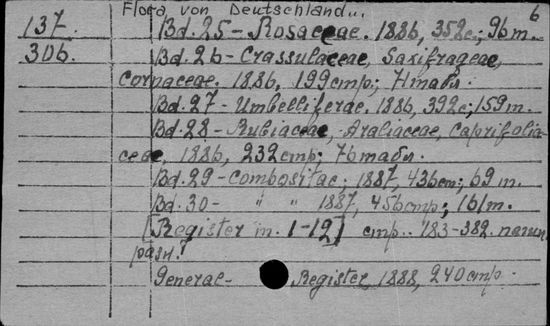 6
Flora von Deutschland...
137. Bd. 25 - Rosaceae. 1886, 352c; 96 m.
306. Bd. 26 - Crassulaceae, Saxifrageae,
Cornaceae. 1886, 199 стр; 71 табл.
Bd. 27 - Umbelliferae. 1886, 392c; 159 m.
Bd. 28 - Rubiaceae, Araliaceae, Caprifolia-
ceae, 1886, 232 стр; 76 табл.
Bd. 29 - Compositae; 1887, 436 cm; 69 m.
Bd. 30 - " " 1887, 456 стр; 161 m.
[Register in. 1-12] стр.. 183-382.
General- Register, 1888, 240 стр.